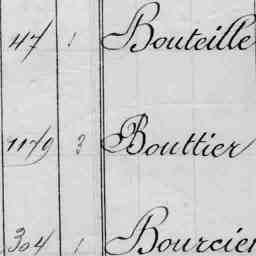 47 1 Bouteille
1179 3 Bouttier
304 1 Bourcier